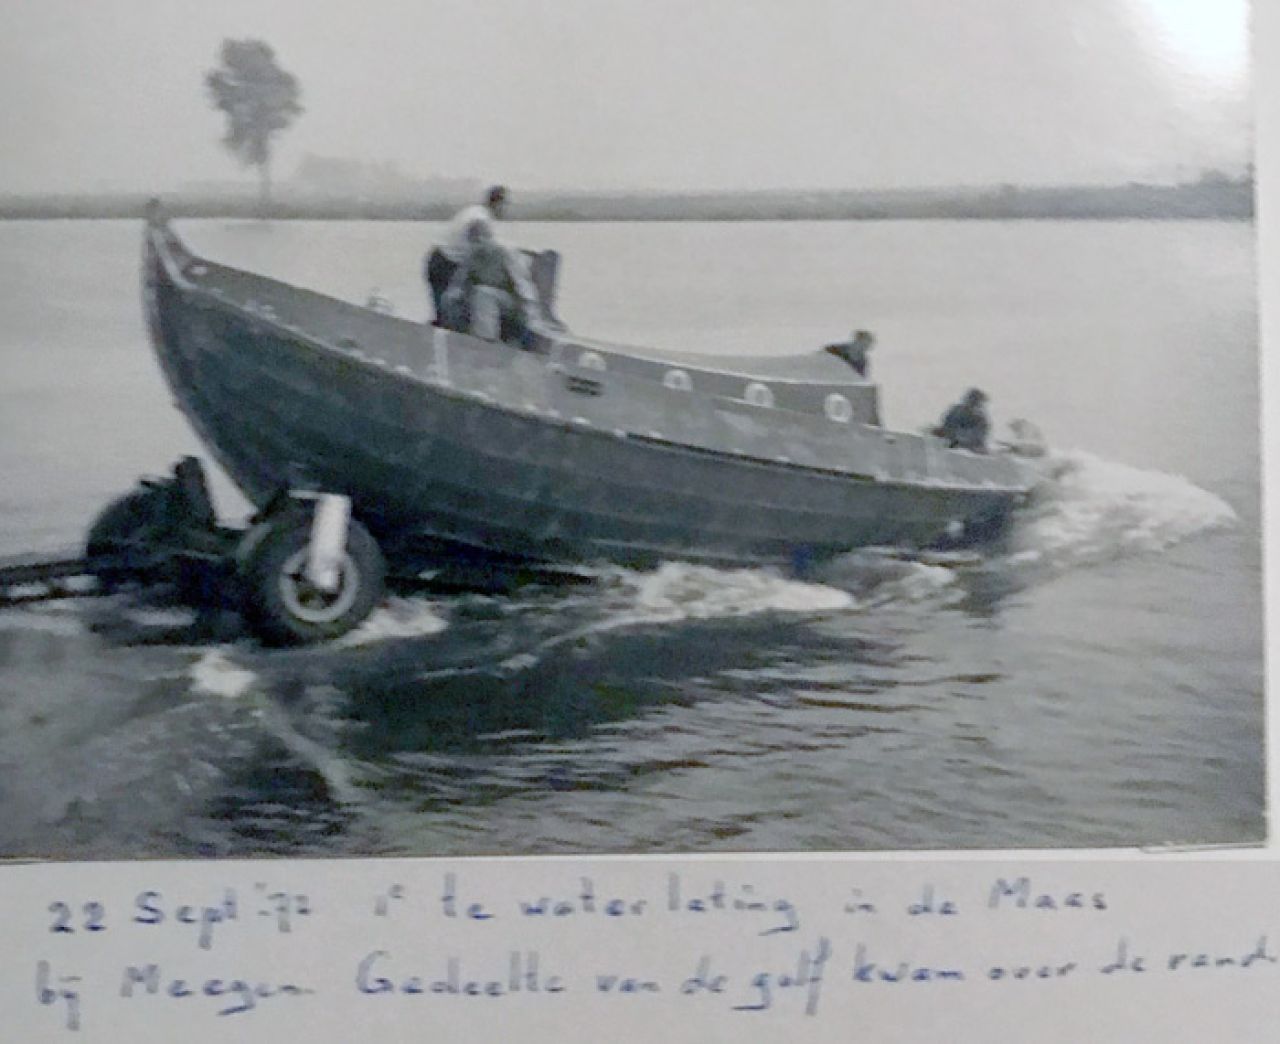 22 Sept '72 1e te waterlating in de Maas
bij Meegen. Gedeelte van de golf kwam over de rand.